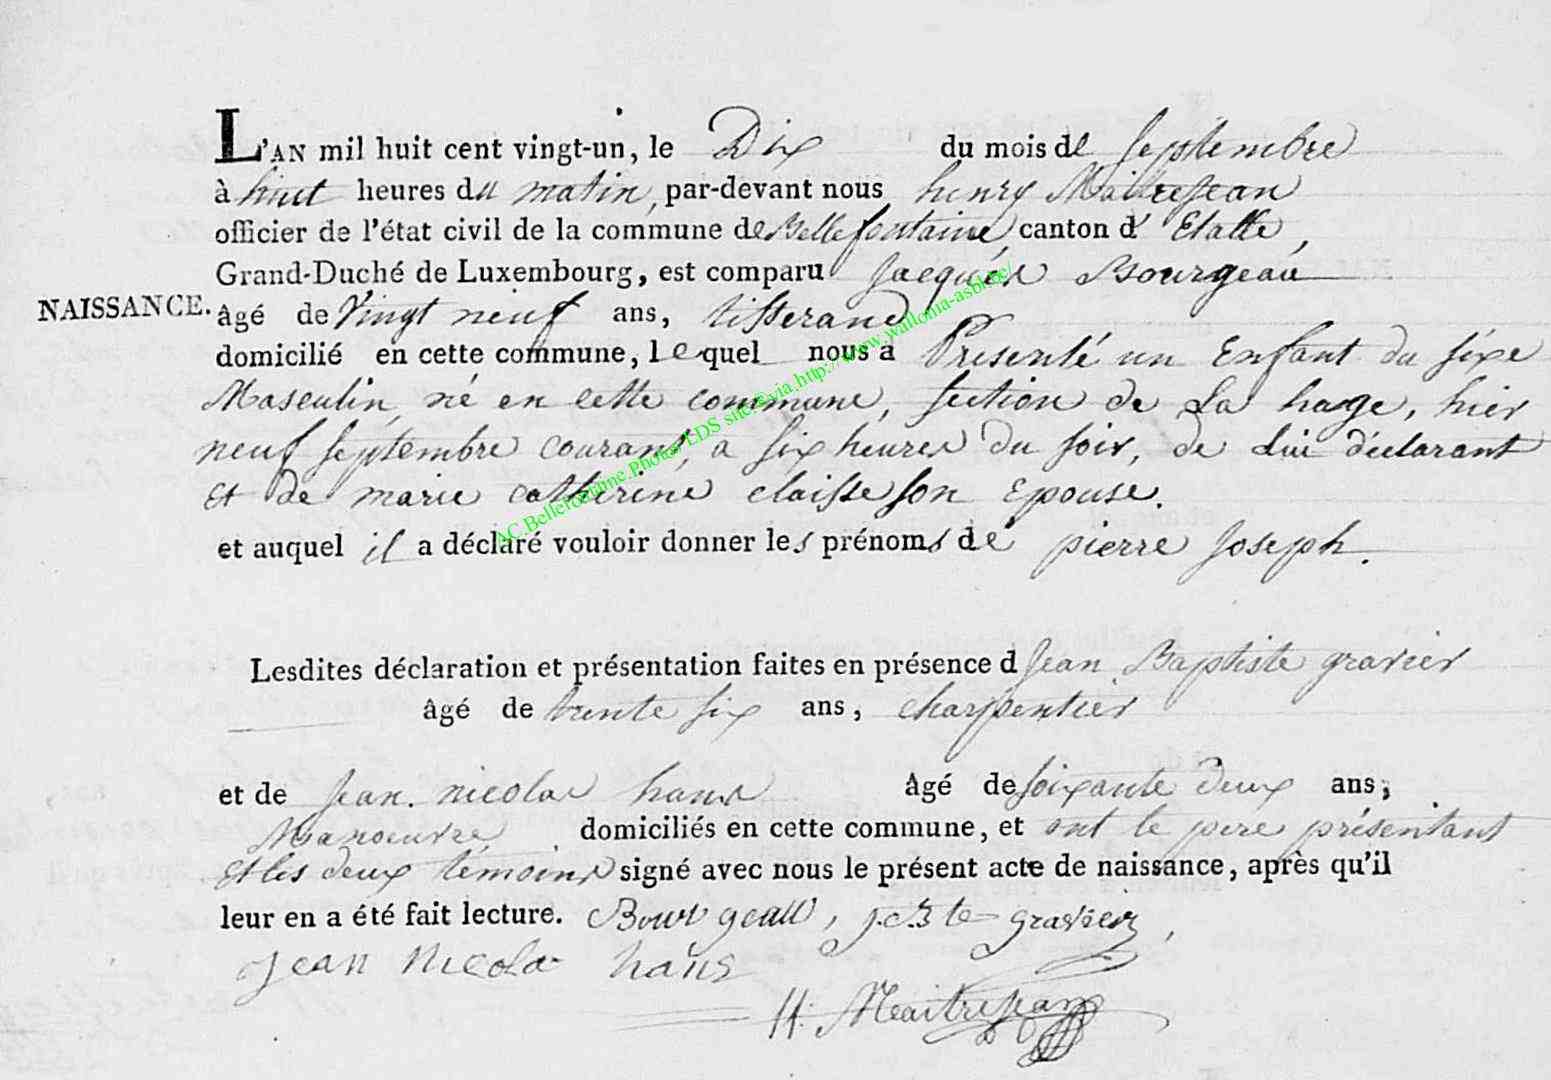 L'AN mil huit cent vingt-un, le Dix du mois de Septembre
à huit heures du matin, par-devant nous henry Maitrejean
officier de l'état civil de la commune de Bellefontaine, canton d'Etalle,
Grand-Duché de Luxembourg, est comparu Jacques Bourgeau
NAISSANCE. âgé de Vingt neuf ans, tisserand
domicilié en cette commune, lequel nous a Présenté un Enfant du sexe
Masculin, né en cette commune, section de La hage, hier
neuf septembre courant, a six heures du soir, de Lui déclarant
et de marie catherine claisse son Epouse.
et auquel il a déclaré vouloir donner les prénoms de pierre Joseph.
Lesdites déclaration et présentation faites en présence d Jean Baptiste gravier
âgé de trente six ans, charpentier
et de Jean. nicolas hans âgé de soixante deux ans,
Manoeuvre domiciliés en cette commune, et ont le pere présentant
Et les deux témoins signé avec nous le présent acte de naissance, après qu'il
leur en a été fait lecture. Bourgeau, j.Bte gravier,
Jean Nicola hans
H. Maitrejean
AC.Bellefontaine.Photos LDS site©via http://www.wallonia-asbl.be/